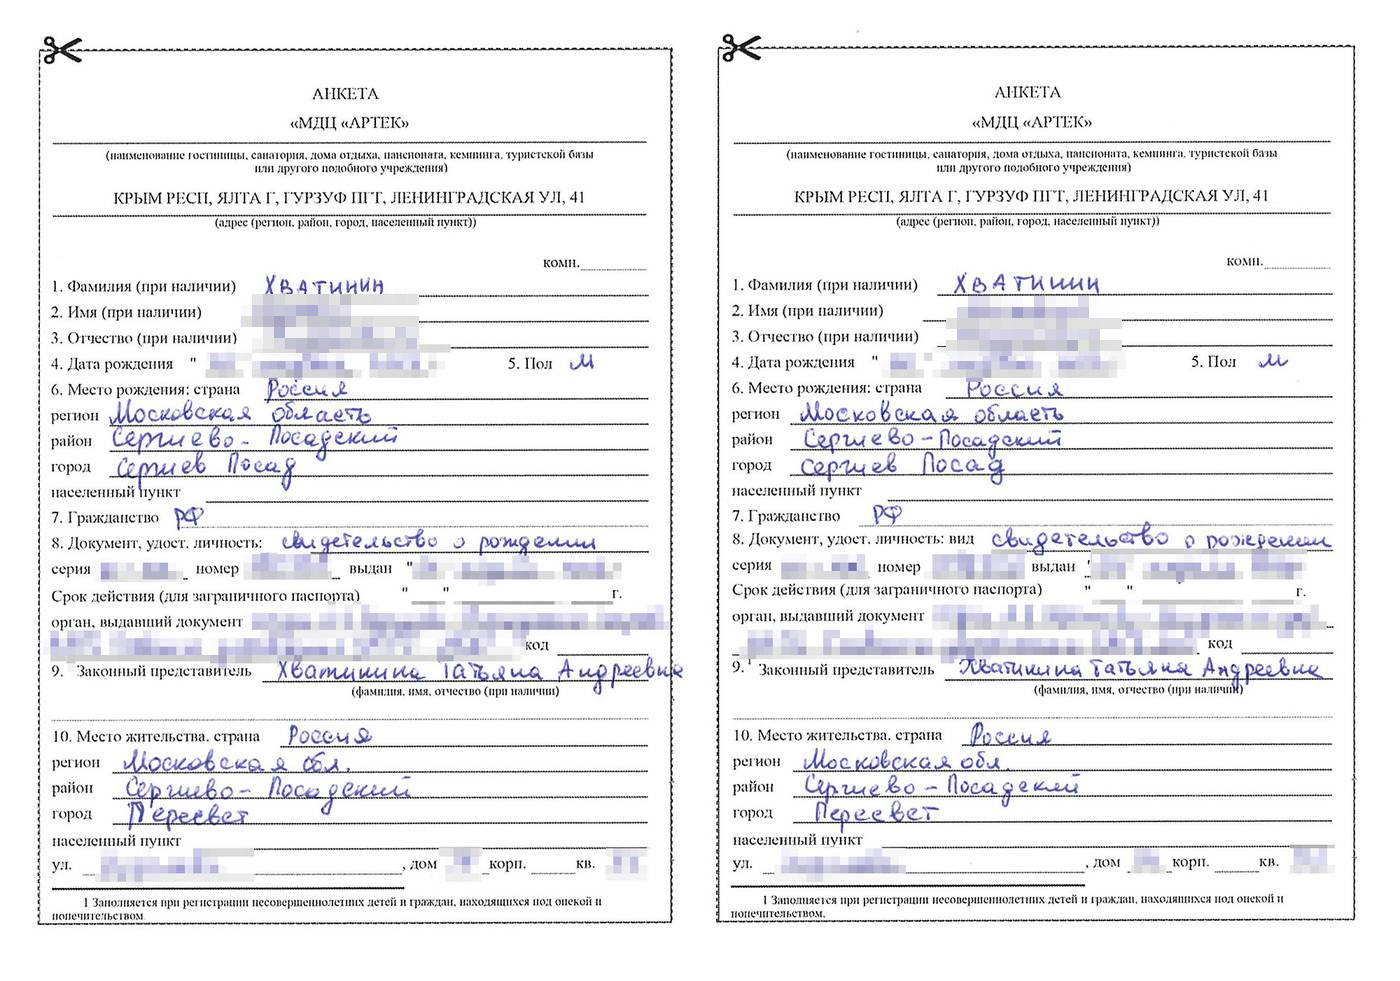 АНКЕТА
«МДЦ «АРТЕК»
(наименование гостиницы, санатория, дома отдыха, пансионата, кемпинга, туристской базы
или другого подобного учреждения)
КРЫМ РЕСП, ЯЛТА Г, ГУРЗУФ ПГТ, ЛЕНИНГРАДСКАЯ УЛ, 41
(адрес (регион, район, город, населенный пункт))
комн.
1. Фамилия (при наличии) ХВАТИНИН
2. Имя (при наличии)
3. Отчество (при наличии)
4. Дата рождения " 5. Пол М
6. Место рождения: страна Россия
регион Московская область
район Сергиево-Посадский
город Сергиев Посад
населенный пункт
7. Гражданство РФ
8. Документ, удост. личность: свидетельство о рождении
серия номер выдан "
Срок действия (для заграничного паспорта) " " г.
орган, выдавший документ
код
9. Законный представитель Хватинина Татьяна Андреевна
(фамилия, имя, отчество (при наличии)
10. Место жительства. страна Россия
регион Московская обл.
район Сергиево-Посадский
город Пересвет
населенный пункт
ул. , дом корп. кв.
1 Заполняется при регистрации несовершеннолетних детей и граждан, находящихся под опекой и
попечительством.
АНКЕТА
«МДЦ «АРТЕК»
(наименование гостиницы, санатория, дома отдыха, пансионата, кемпинга, туристской базы
или другого подобного учреждения)
КРЫМ РЕСП, ЯЛТА Г, ГУРЗУФ ПГТ, ЛЕНИНГРАДСКАЯ УЛ, 41
(адрес (регион, район, город, населенный пункт))
комн.
1. Фамилия (при наличии) ХВАТИНИН
2. Имя (при наличии)
3. Отчество (при наличии)
4. Дата рождения " 5. Пол М
6. Место рождения: страна Россия
регион Московская область
район Сергиево-Посадский
город Сергиев Посад
населенный пункт
7. Гражданство РФ
8. Документ, удост. личность: вид свидетельство о рождении
серия номер выдан "
Срок действия (для заграничного паспорта) " " г.
орган, выдавший документ
код
9.¹ Законный представитель Хватинина Татьяна Андреевна
(фамилия, имя, отчество (при наличии)
10. Место жительства. страна Россия
регион Московская обл.
район Сергиево-Посадский
город Пересвет
населенный пункт
ул. , дом корп. кв.
1 Заполняется при регистрации несовершеннолетних детей и граждан, находящихся под опекой и
попечительством.